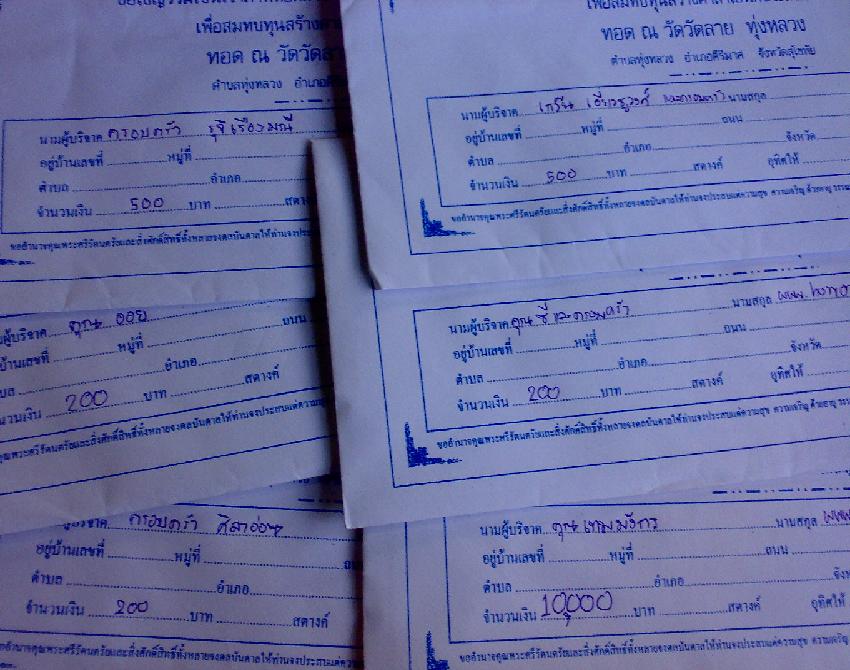 เพื่อสมทบทุนสร้าง
ทอด ณ วัดวัดลาย
ตำบลทุ่งหลวง อำเภอ
นามผู้บริจาค ครอบครัว รุจิเรืองมณี
อยู่บ้านเลขที่ หมู่ที่
ตำบล อำเภอ
จำนวนเงิน 500 บาท
ขออำนาจคุณพระศรีรัตนตรัยและสิ่งศักดิ์สิทธิ์ทั้งหลายจงดลบันดาลให้ท่านจง
ทอด ณ วัดวัดลาย ทุ่งหลวง
ตำบลทุ่งหลวง อำเภอคีรีมาศ จังหวัดสุโขทัย
นามผู้บริจาค และครอบครัว นามสกุล
อยู่บ้านเลขที่ หมู่ที่ ถนน
ตำบล อำเภอ จังหวัด
จำนวนเงิน 500 บาท สตางค์ อุทิศให้
ขออำนาจคุณพระศรีรัตนตรัยและสิ่งศักดิ์สิทธิ์ทั้งหลายจงดลบันดาลให้ท่านจงประสบแต่ความสุข ความเจริญ ด้วยอายุ วรรณ
ผู้บริจาค คุณ ออย
บ้านเลขที่ หมู่ที่ ถนน
อำเภอ
นวนเงิน 200 บาท สตางค์
คุณพระศรีรัตนตรัยและสิ่งศักดิ์สิทธิ์ทั้งหลายจงดลบันดาลให้ท่านจงประสบแต่ความ
นามผู้บริจาค คุณ ชี และครอบครัว นามสกุล
อยู่บ้านเลขที่ หมู่ที่ ถนน
ตำบล อำเภอ จังหวัด
จำนวนเงิน 200 บาท สตางค์ อุทิศให้
ขออำนาจคุณพระศรีรัตนตรัยและสิ่งศักดิ์สิทธิ์ทั้งหลายจงดลบันดาลให้ท่านจงประสบแต่ความสุข ความเจริญ ด้วยอายุ วรร
ครอบครัว ศิลาอ่อน
อยู่บ้านเลขที่ หมู่ที่
ตำบล อำเภอ
จำนวนเงิน 200 บาท สตางค์
คุณพระศรีรัตนตรัยและสิ่งศักดิ์สิทธิ์ทั้งหลายจงดลบันดาลให้ท่านจงประสบแต่คว
นามผู้บริจาค คุณ เทพมังกร นามสกุล www
อยู่บ้านเลขที่ หมู่ที่ ถนน
ตำบล อำเภอ
จำนวนเงิน 10,000 บาท สตางค์ อุทิศให้
ขออำนาจคุณพระศรีรัตนตรัยและสิ่งศักดิ์สิทธิ์ทั้งหลายจงดลบันดาลให้ท่านจงประสบแต่ความสุข ความเจริญ